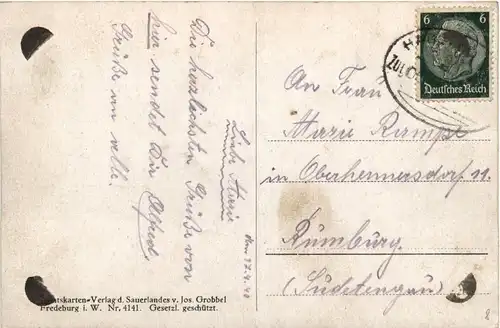 Liebe Marie
Die herzlichsten Grüße von
hier sendet Dir Alfred.
Grüße an alle.
An Frau
Marie Rumpe
in Oberhennersdorf 11
Rumburg.
(Sudetengau)
6 6
Deutsches Reich
-Verlag d. Sauerlandes v. Jos. Grobbel
Fredeburg i. W. Nr. 4141. Gesetzl. geschützt.